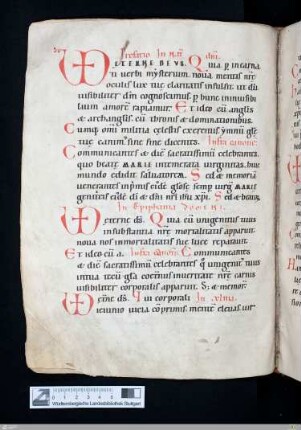 Prefatio In nat dni.
ETERNE DEVS. Quia p incarna
ti uerbi mysterium. noua mentis nre
oculis lux tue claritatis infulsit. ut dū
uisibiliter dm cognoscimus p hunc inuisibi
lium amorē rapiamur. Et ideo cū anglis
& archanglis cū thronis & dominationibus.
Cumq, omi militia celestis exercitus ymnū glę
tue canim' sine fine dicentes. Infra canone.
Communicantes & diē sacratissimū celebrantes.
quo beatę MARIE intemerata uirginitas. huic
mundo edidit saluatorem. Sed & memoriā
uenerantes inprimis eiusdē glose semp uirg MARIE
genitricis eiusdē di & dni nri ihu xpi. Sed & beatoꝝ.
In Epiphania
Eterne ds. Quia cū unigenitus tuus
in substantia nre mortalitatis apparuit.
noua nos inmortalitatis sue luce reparauit.
Et ideo cū a. Infra canone. Communicantes
& diē sacratissimū celebrantes q unigenit' tuus
in tua tecū gła coetern' in ueritate nrę carnis
uisibiliter corporalis apparuit. S; & memor.
Eterne ds. Qui corporali In xlma.
ieiunio uicia cōprimis. mente eleuas uir
Württembergische Landesbibliothek Stuttgart